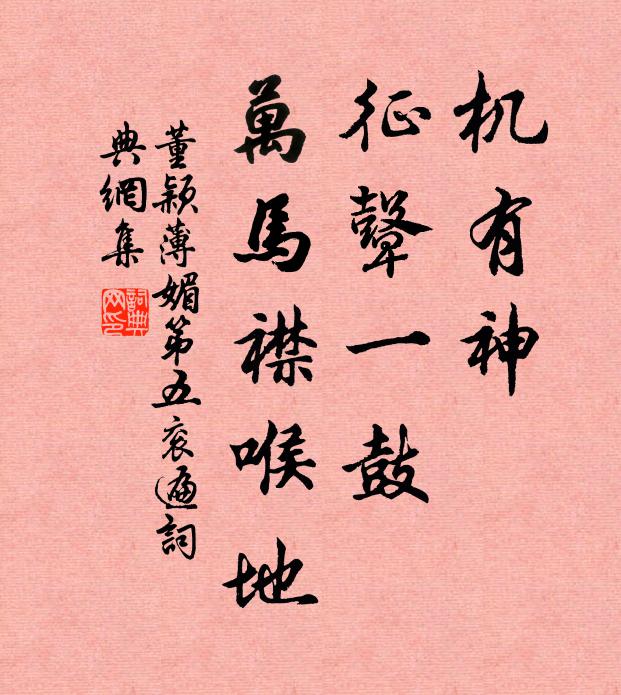 机有神
征鼙一鼓
萬馬襟喉地
董颖薄媚第五衮遍詞
典網集
詞典网印